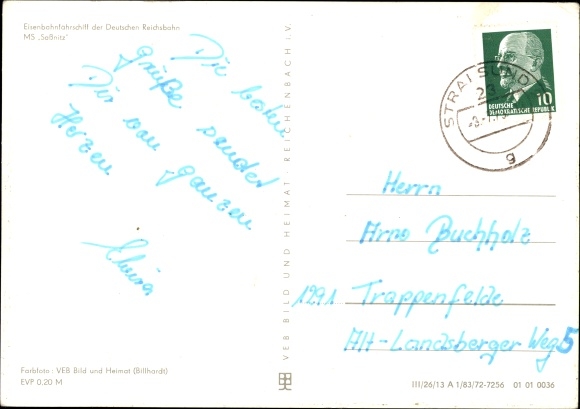 Eisenbahnfährschiff der Deutschen Reichsbahn
MS „Saßnitz"
Die
Grüße sendet
Dir von ganzen
Herzen
VEB BILD UND HEIMAT · REICHENBACH I. V.
STRALSUND
23
g
DEUTSCHE
DEMOKRATISCHE REPUBLIK
10
Herrn
Arno Buchholz
1291 Trappenfelde
Alt-Landsberger Weg 5
Farbfoto: VEB Bild und Heimat (Billhardt)
EVP 0.20 M
III/26/13 A 1/83/72-7256 01 01 0036